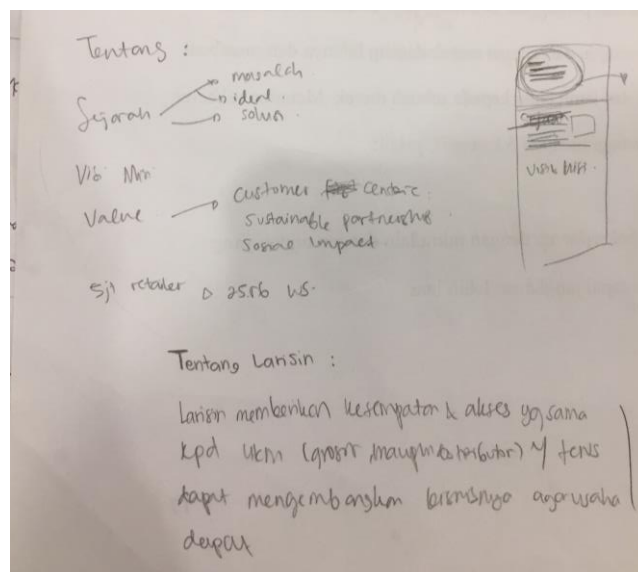 Tentang :
Sejarah → masalah
→ ident
→ solusi
Visi Misi
Value → Customer Centric
Sustainable partnership
Sosial Impact
retailer → 25rb
Visi Misi
Tentang Larisin :
Larisin memberikan kesempatan & akses yg sama
kpd UKM (grosir maupun distributor) terus
dapat mengembangkan bisnisnya agar usaha
dapat